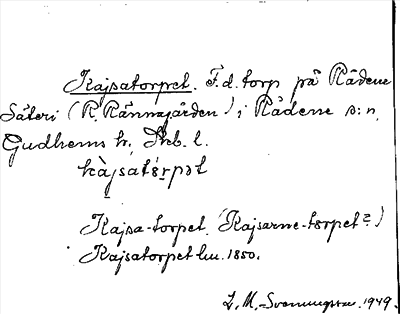 Kajsatorpet. F.d. torp på Rådene
Säteri (R. Rännagården), i Rådene s:n,
Gudhems hr, Skb. l.
kàjsatɷrpət
Kajsa-torpet. (Kajsarne-torpet?)
Kajsatorpet hu. 1850.
L. M. Svenungsson. 1949.